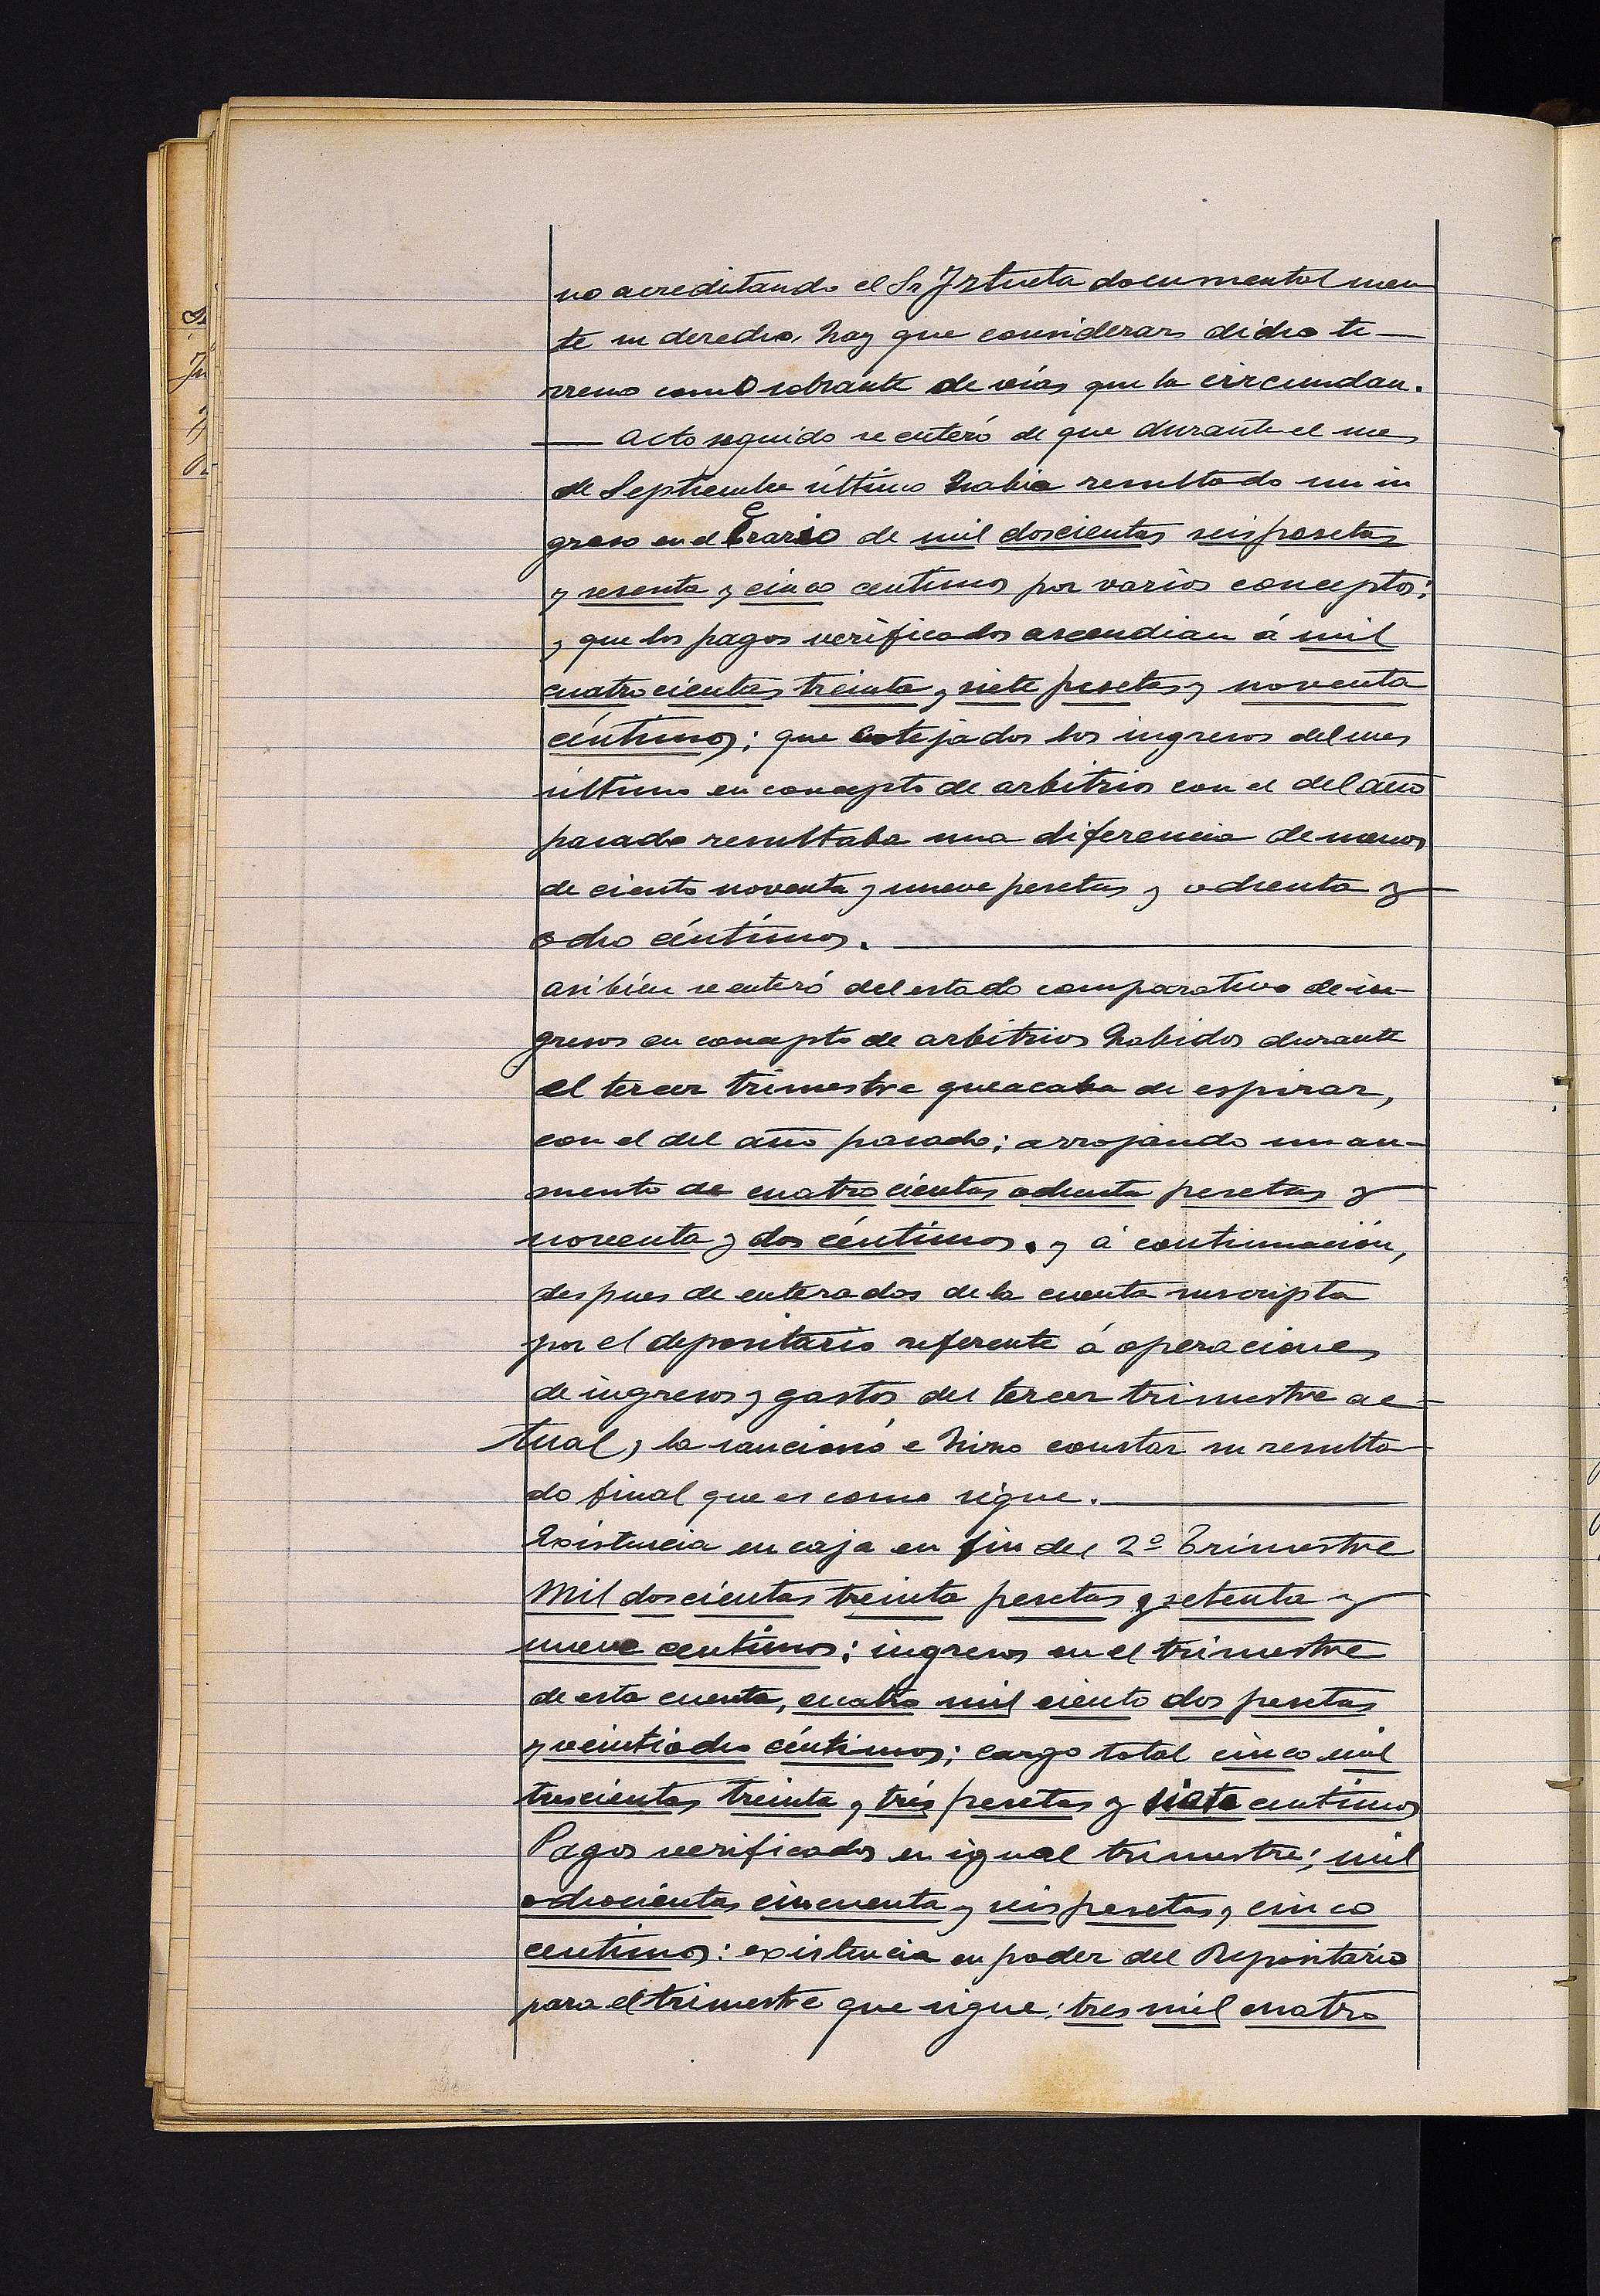 no acreditando el Sr Iztueta documental men
te su derecho, hay que considerar dicho te-
rreno como sobrante de vías que la circundan.
— Acto seguido se enteró de que durante el mes
de Septiembre último había resultado un in
greso en el Erario de mil doscientas seis pesetas
y sesenta y cinco centimos por varios conceptos;
y que los pagos verificados ascendian á mil
cuatrocientas treinta y siete pesetas y noventa
céntimos; que cotejados los ingresos del mes
último en concepto de arbitrios con el del año
pasado resultaba una diferencia de menos
de ciento noventa y nueve pesetas y ochenta y
ocho céntimos.
asi bien se enteró del estado comparativo de in-
gresos en concepto de arbitrios habidos durante
el tercer trimestre que acaba de espirar,
con el del año pasado; arrojando un au-
mento de cuatrocientas ochenta pesetas y
noventa y dos céntimos. y á continuación,
despues de enterados de la cuenta suscripta
por el depositario referente á operaciones
de ingresos y gastos del tercer trimestre ac-
tual, la sancionó e hizo constar su resulta-
do final que es como sigue.
Existencia en caja en fin del 2º Trimestre
Mil doscientas treinta pesetas y setenta y
nueve centimos; ingresos en el trimestre
de esta cuenta, cuatro mil ciento dos pesetas
y veintiocho céntimos; cargo total cinco mil
trescientas treinta y tres pesetas y siete centimos
Pagos verificados en igual trimestre; mil
ochocientas cincuenta y seis pesetas y cinco
centimos: existencia en poder del Depositario
para el trimestre que sigue; tres mil cuatro